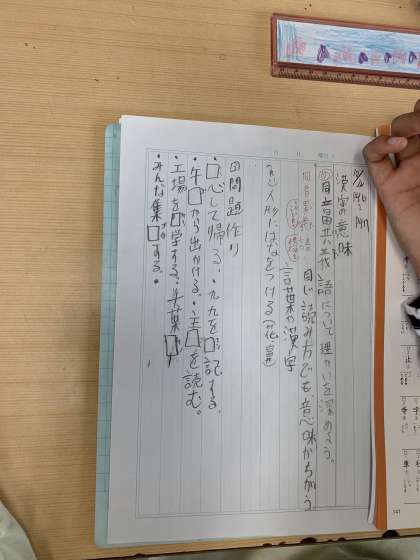 146
147
漢字の意味
同音異義語について理かいを深めよう。
同音異義語 同じ読み方でも、意味がちがう
言葉や漢字
人形にはなをつける(花 鼻)
問題作り
・□心して帰る。・九九を□記する。
・午□から出かける。・主□を読む。
・工場を□学する。
・みんな集□する。・